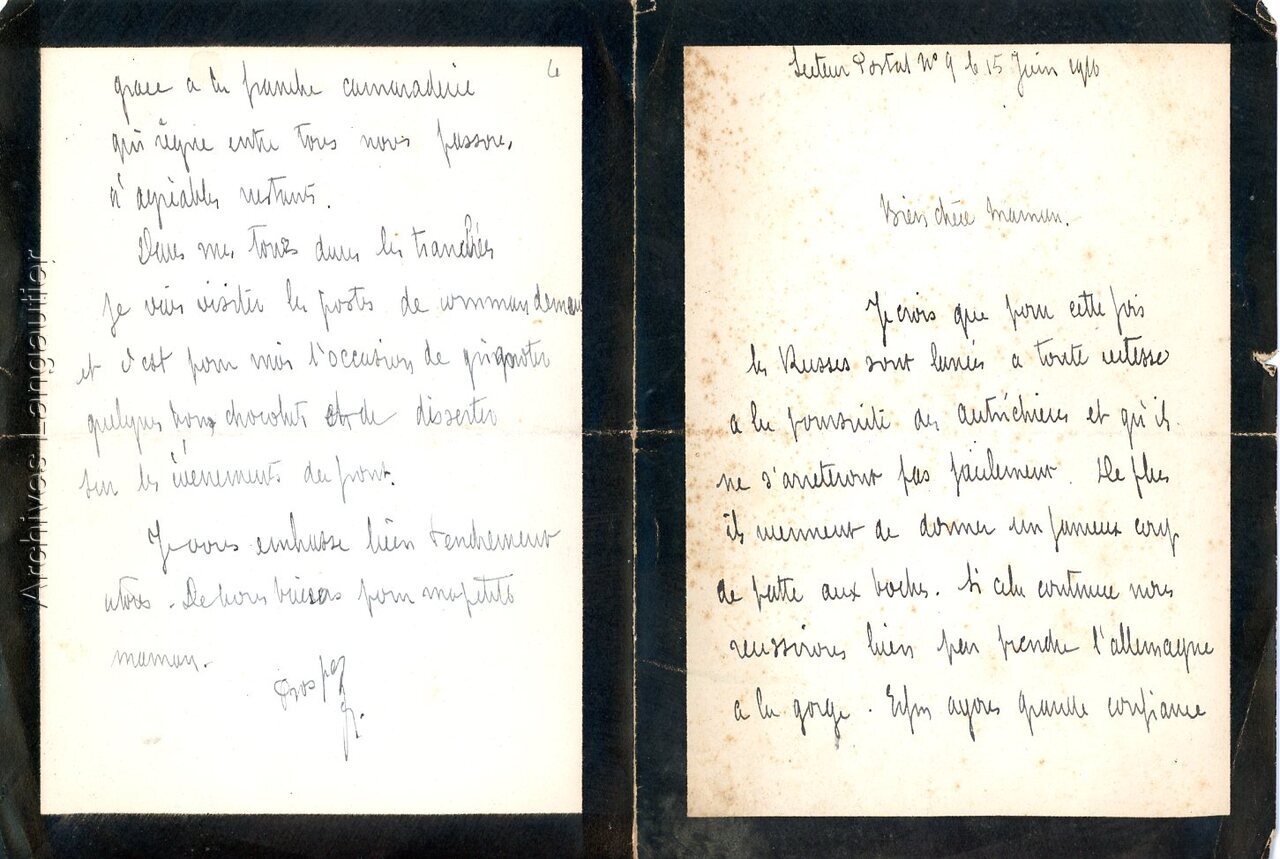 Secteur Postal N° 9 le 15 Juin 1916
Bien chère Maman.
Je crois que pour cette fois
les Russes sont lancés a toute vitesse
a la poursuite des autrichiens et qu'ils
ne s'arreteront pas facilement. De plus
ils viennent de donner un fameux coup
de patte aux boches. Si cela continue nous
reussirons bien par prendre l'allemagne
a la gorge. Enfin ayons grande confiance
4
grace a la franche camaraderie
qui règne entre tous nous passons,
d'agréables instants.
Dans mes tours dans les tranchées
je vais visiter les postes de commandement
et c'est pour moi l'occasion de grignoter
quelques bons chocolats et de disserter
sur les évènements du front.
Je vous embrasse bien tendrement
a tous. De bons baisers pour ma petite
maman.
Prosper
Archives Langlautier